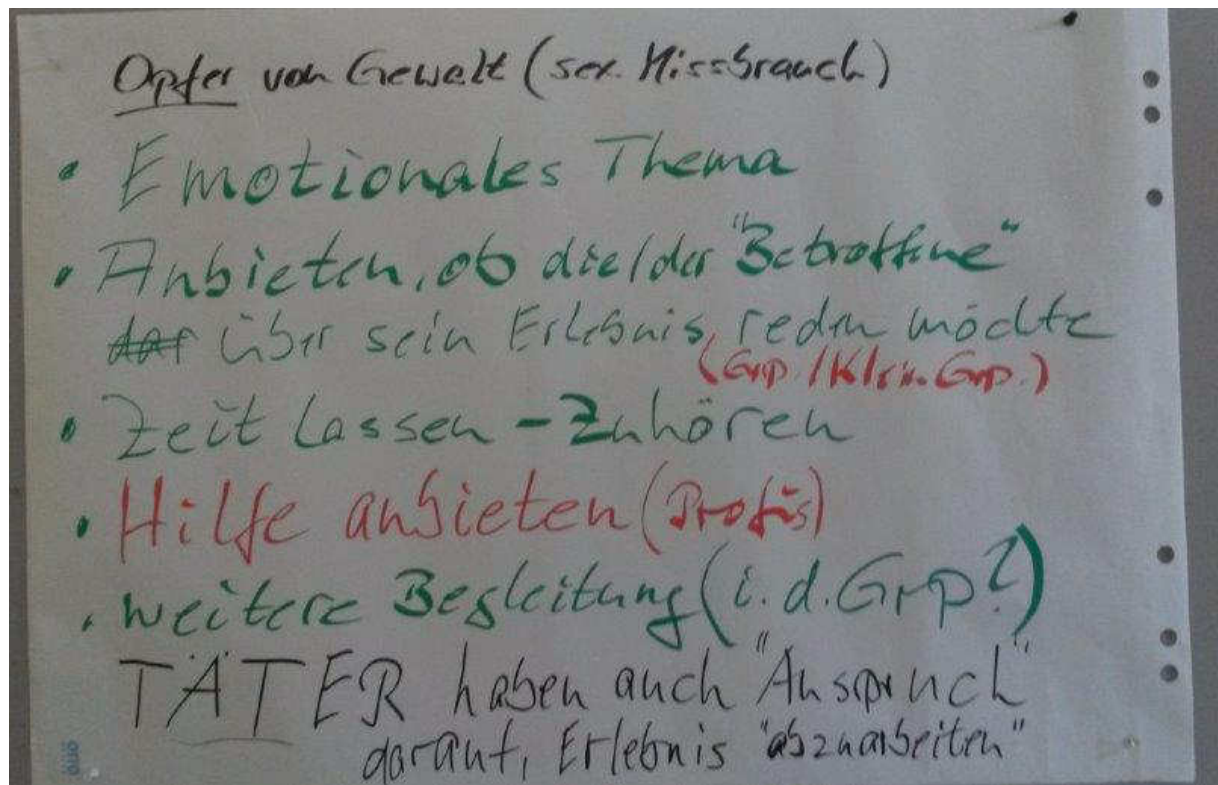 Opfer von Gewalt (sex. Missbrauch)
• Emotionales Thema
• Anbieten, ob die/der "Betroffene"
über sein Erlebnis, reden möchte
(Grp./Klein.Grp.)
• Zeit lassen - Zuhören
• Hilfe anbieten (Profis)
• weitere Begleitung (i.d.Grp?)
TÄTER haben auch "Anspruch"
darauf, Erlebnis "abzuarbeiten"